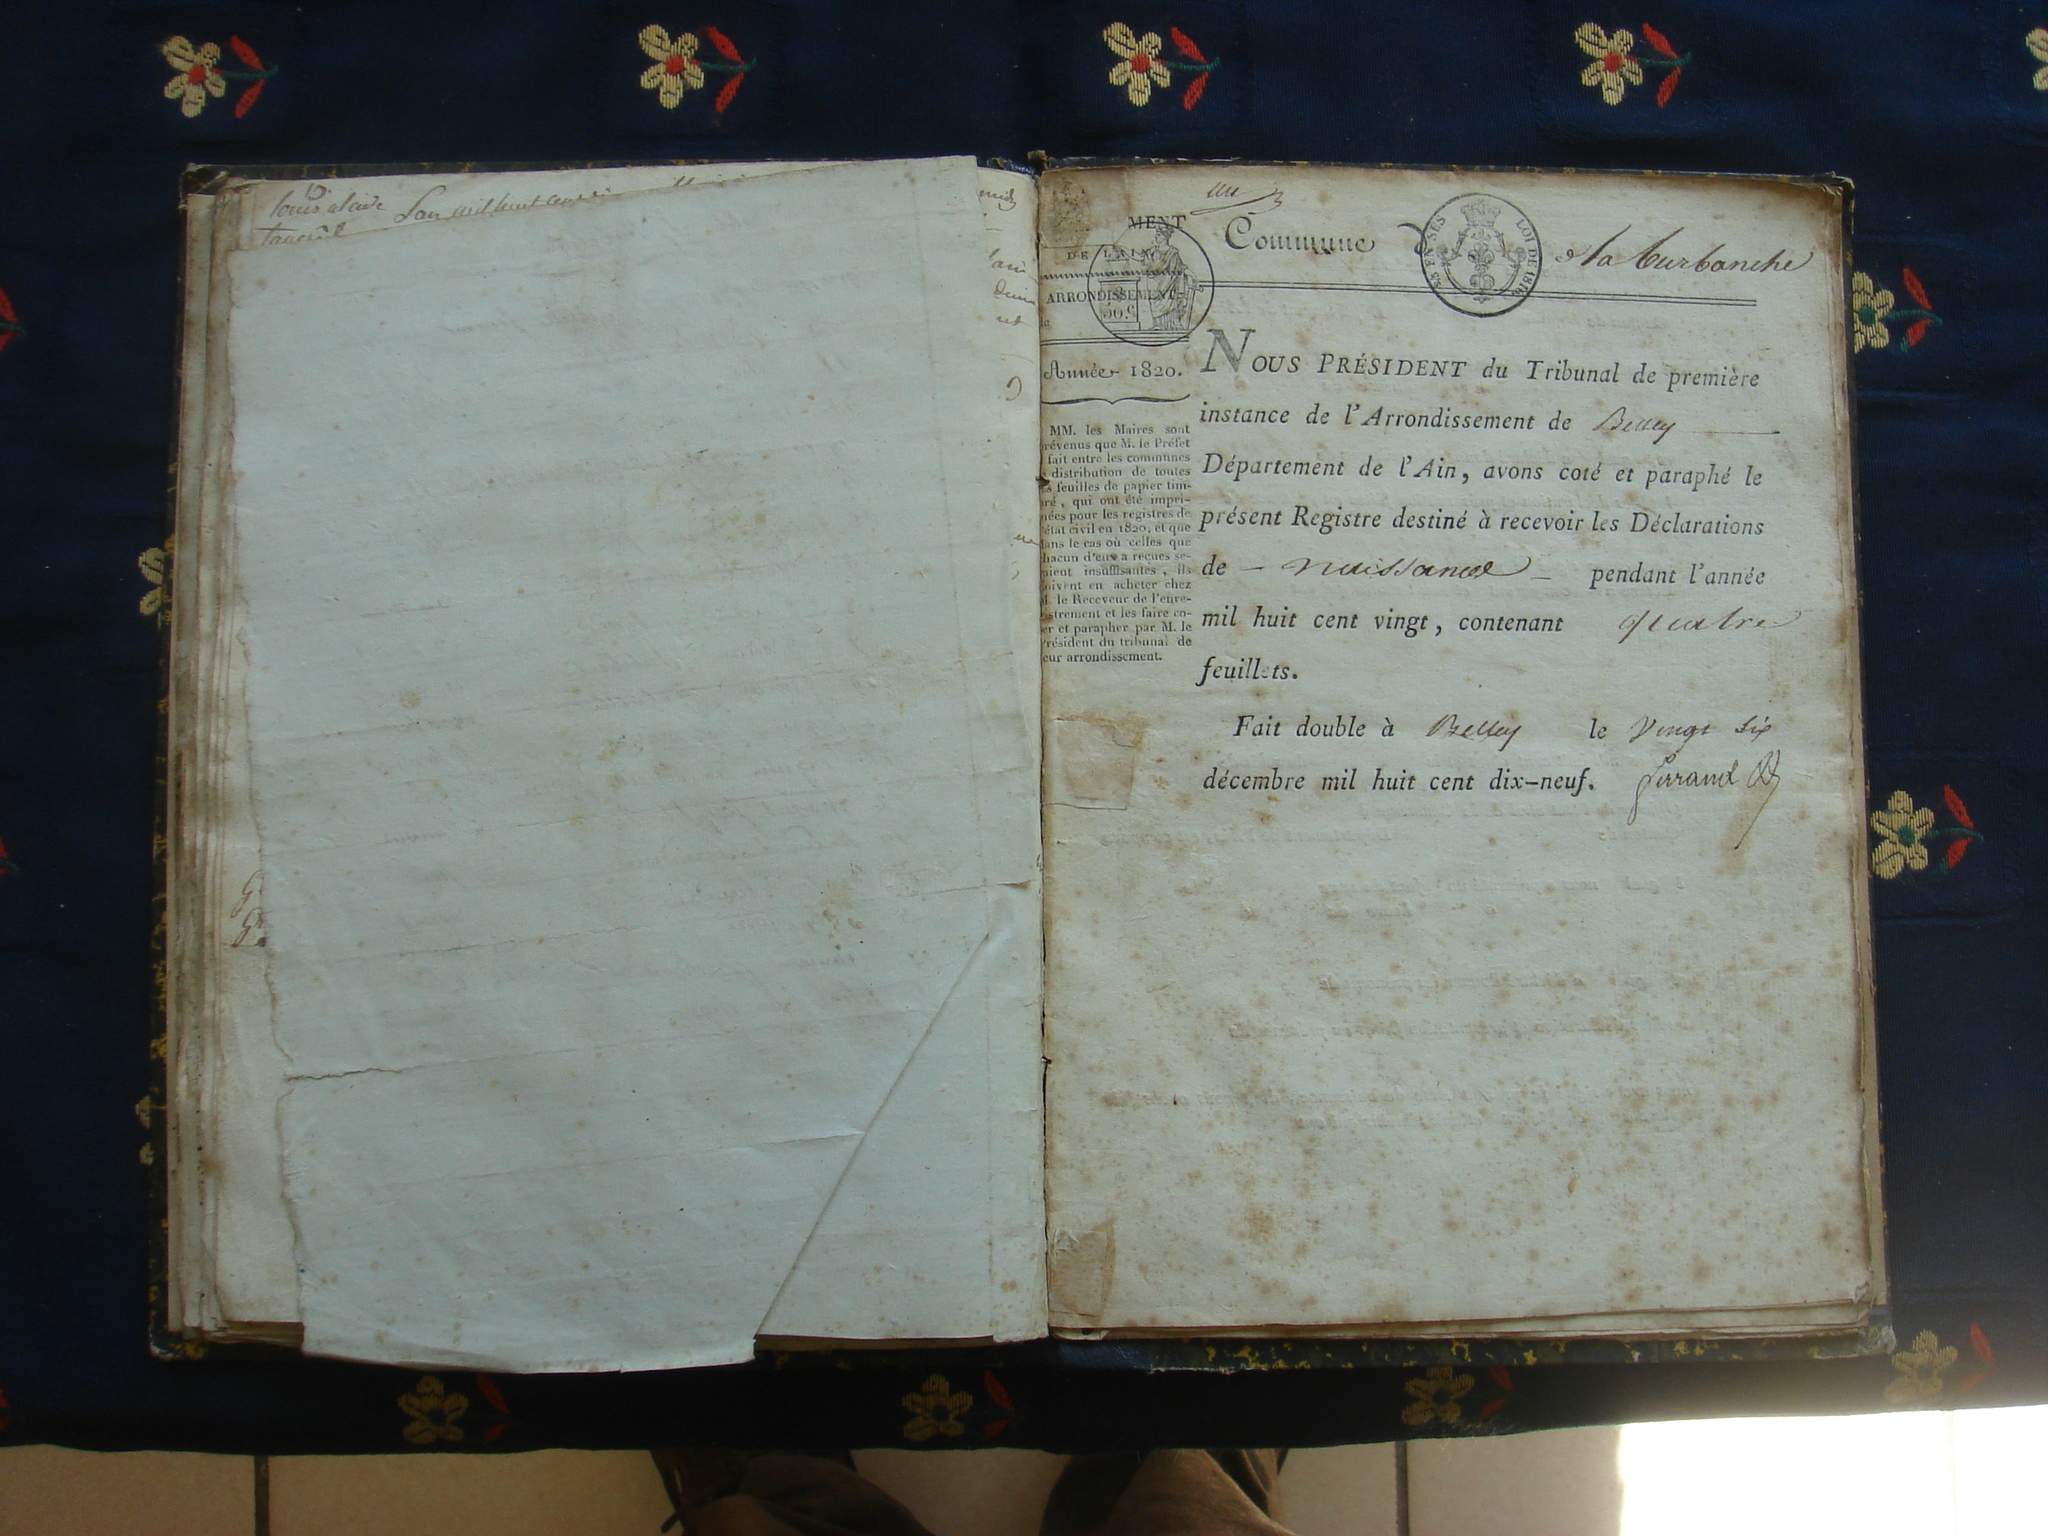 Louis alaire L'an mil huit cent
un
MENT
DE L'AIN
ARRONDISSEMENT
50 C
Année 1820.
MM. les Maires sont
prévenus que M. le Préfet
fait entre les communes
distribution de toutes
feuilles de papier tim-
bré, qui ont été impri-
mées pour les registres de
l'état civil en 1820, et que
dans le cas où celles que
chacun d'eux a reçues se-
raient insuffisantes, ils
doivent en acheter chez
M. le Receveur de l'enre-
gistrement et les faire co-
ter et parapher par M. le
Président du tribunal de
leur arrondissement.
Commune d
LOI DE 1816
e la burbanche
NOUS PRÉSIDENT du Tribunal de première
instance de l'Arrondissement de Belley
Département de l'Ain, avons coté et paraphé le
présent Registre destiné à recevoir les Déclarations
de - naissance - pendant l'année
mil huit cent vingt, contenant quatre
feuillets.
Fait double à Belley le vingt six
décembre mil huit cent dix-neuf. Ferrand